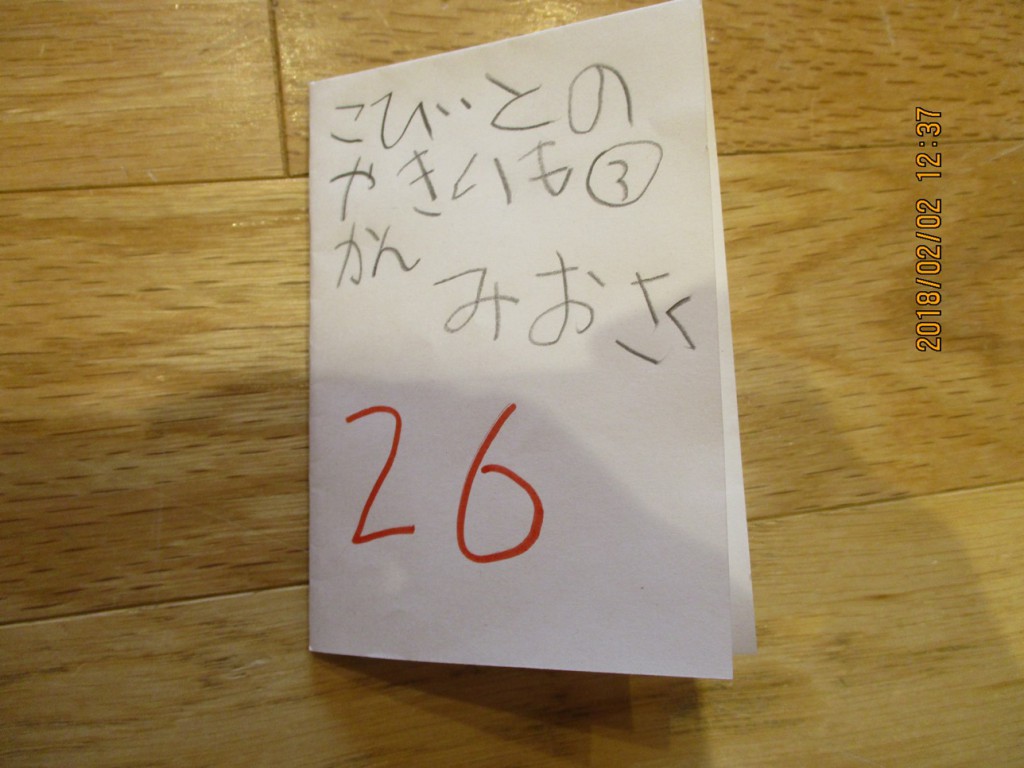 こびとの
やきいも③
かん
みおさく
26
2018/02/02 12:37